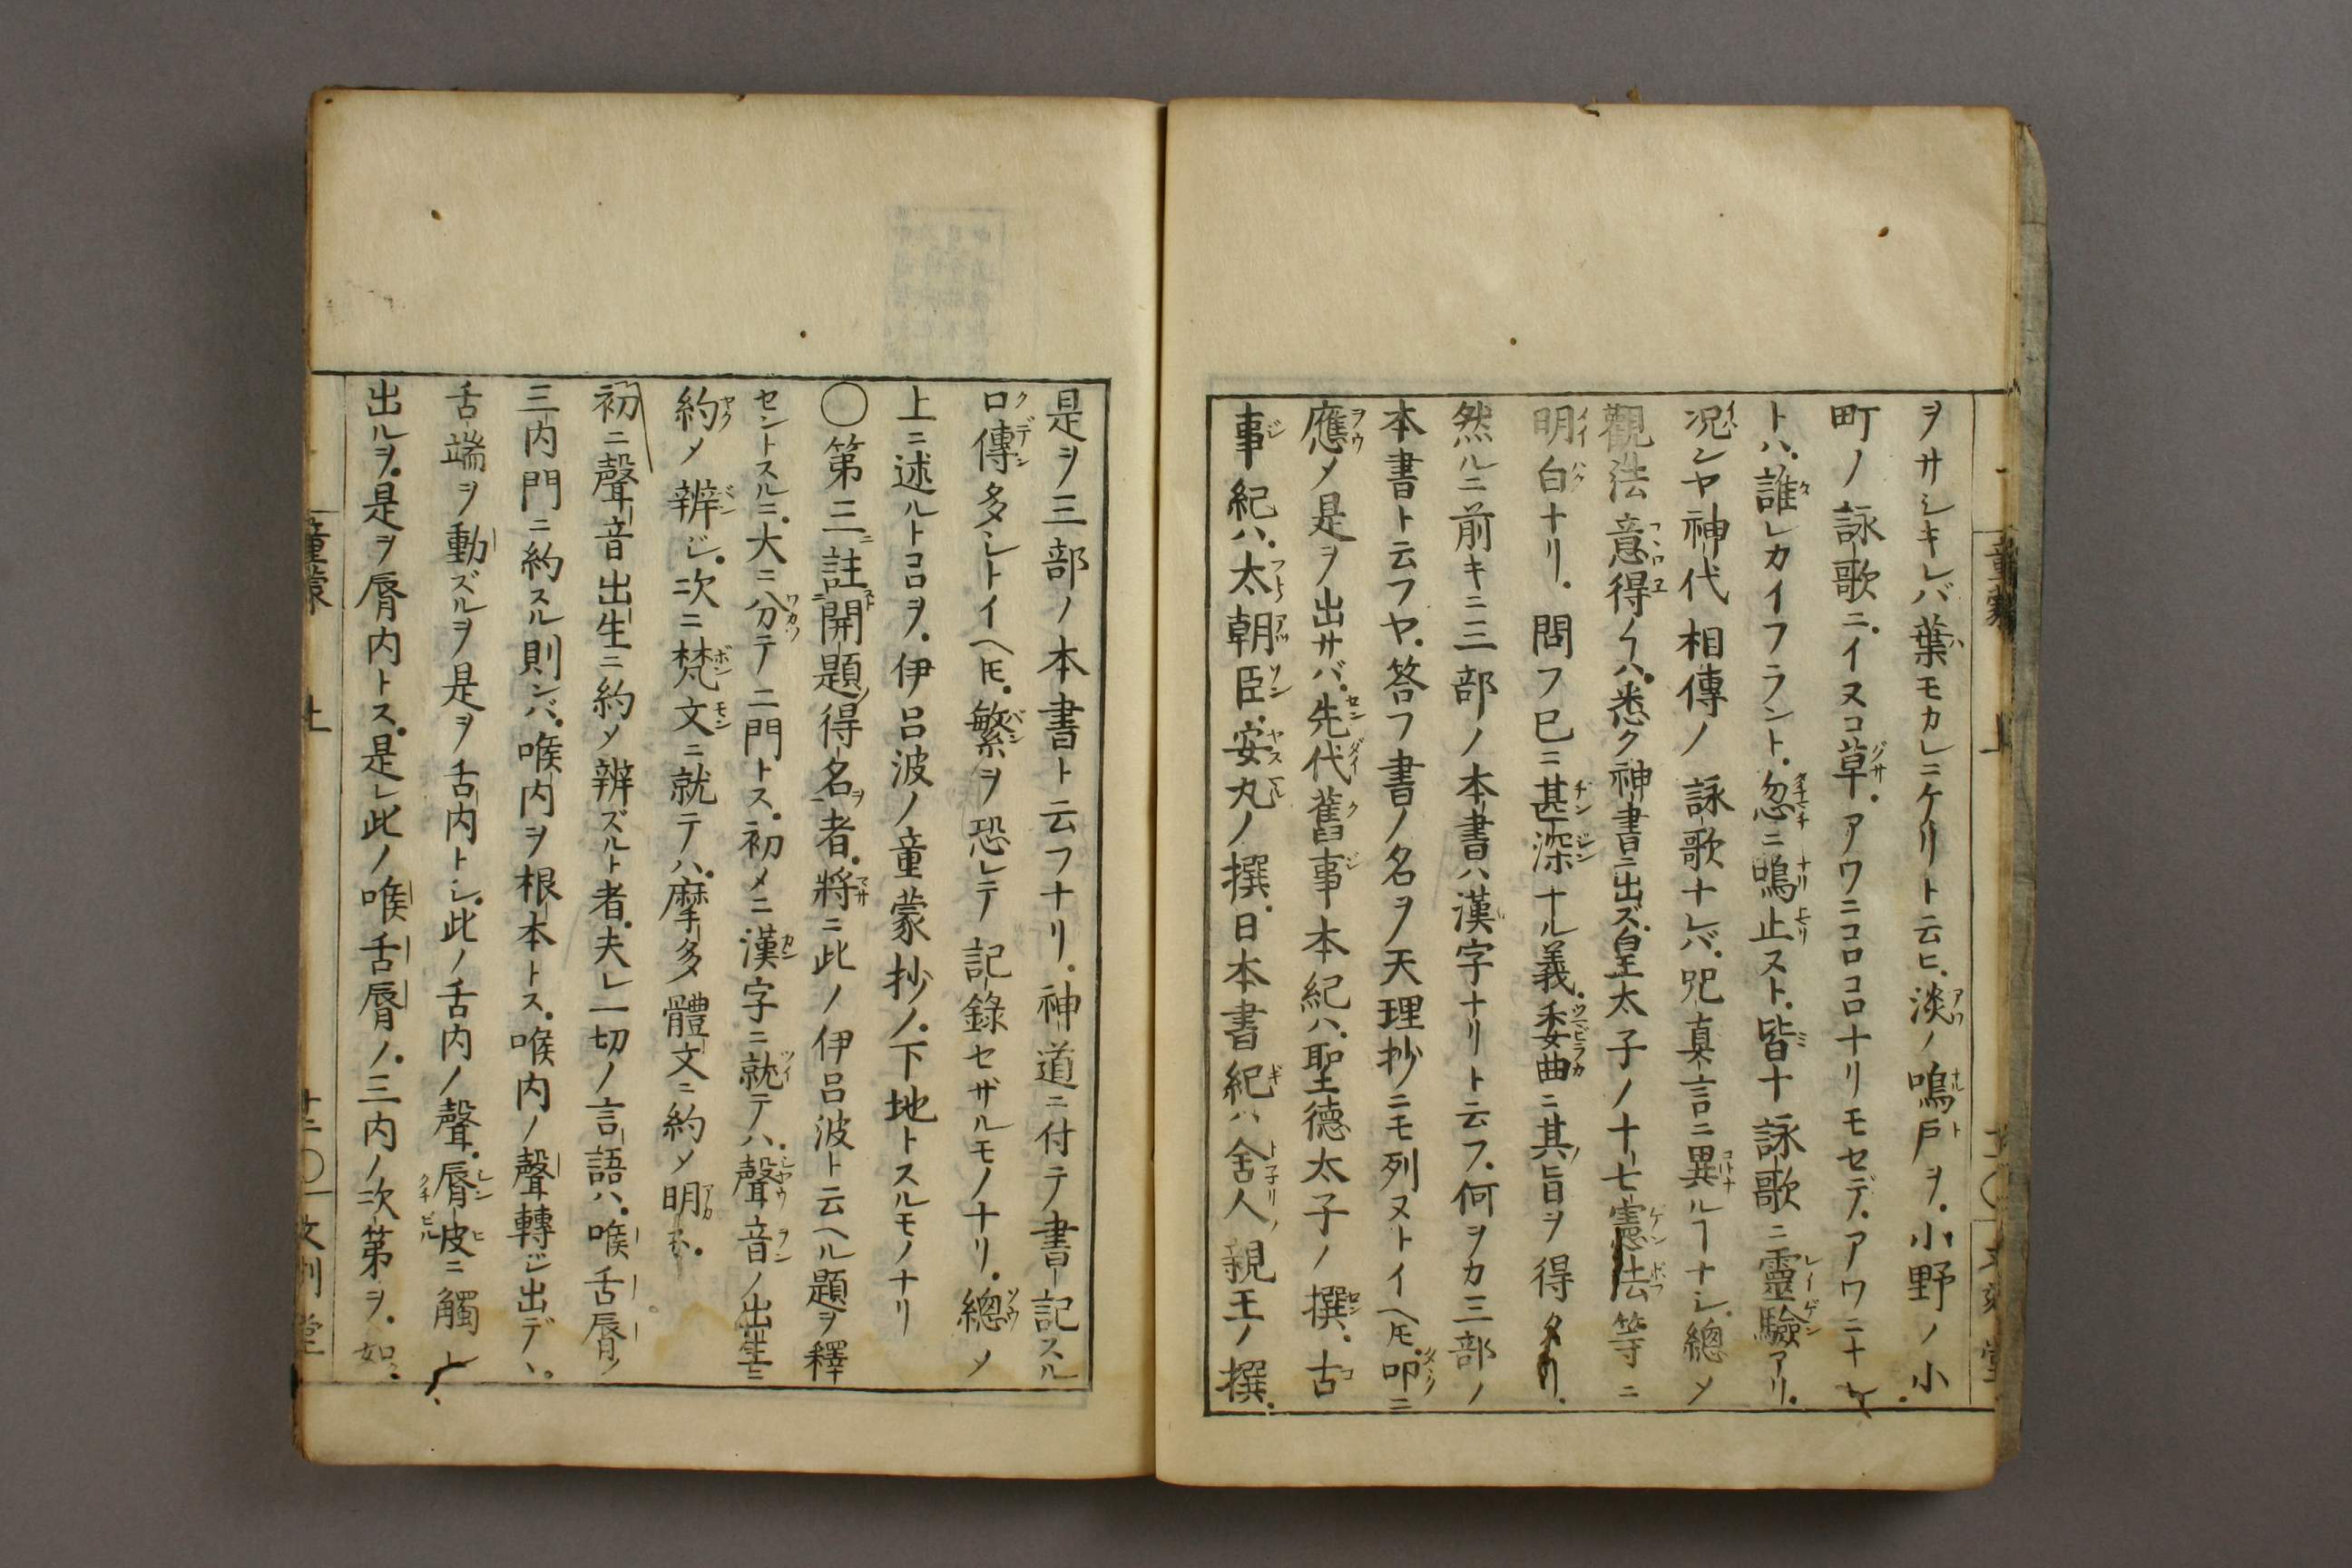 ヲサシキレバ葉モカレニケリト云ヒ淡ノ鳴戸ヲ小野ノ小
町ノ詠歌ニイヌコ草アワニコロコロナリモセデアワニナレ
トハ誰レカイフラント忽ニ鳴止ヌト皆ナ詠歌ニ靈驗アリ
况ンヤ神代相傳ノ詠歌ナレバ咒眞言ニ異ルヿナシ總メ
觀法意得ヘクハ悉ク神書ニ出ズ皇太子ノ十七憲法等ニ
明白ナリ問フ已ニ甚深ナル義委曲ニ其旨ヲ得タリ
然ルニ前キニ三部ノ本書ハ漢字ナリト云フ何ヲカ三部ノ
本書ト云フヤ答フ書ノ名ヲ天理抄ニモ列ヌトイヘ𪜈叩ニ
應メ是ヲ出サバ先代舊事本紀ハ聖德太子ノ撰古
事紀ハ太朝臣安丸ノ撰日本書紀ハ舍人親王ノ撰
是ヲ三部ノ本書ト云フナリ神道ニ付テ書記スル
口傳多シトイヘ𪜈繁ヲ恐レテ記錄セザルモノナリ總メ
上ニ述ルトコロヲ伊呂波ノ童蒙抄ノ下地トスルモノナリ
〇第三註開題得名者將ニ此ノ伊呂波ト云ヘル題ヲ釋
セントスルニ大ニ分テ二門トス初メニ漢字ニ就テハ聲音ノ出生ニ
約メ辨ジ次ニ梵文ニ就テハ摩多體文ニ約メ明ス
初ニ聲音出生ニ約メ辨ズルト者夫レ一切ノ言語ハ喉舌脣ノ
三内門ニ約スル則ンバ喉内ヲ根本トス喉内ノ聲轉ジ出デヽ
舌端ヲ動ズルヲ是ヲ舌内トシ此ノ舌内ノ聲脣皮ニ觸レ
出ルヲ是ヲ脣内トス是レ此ノ喉舌脣ノ三内ノ次第ヲ如
童蒙 上 十二〇